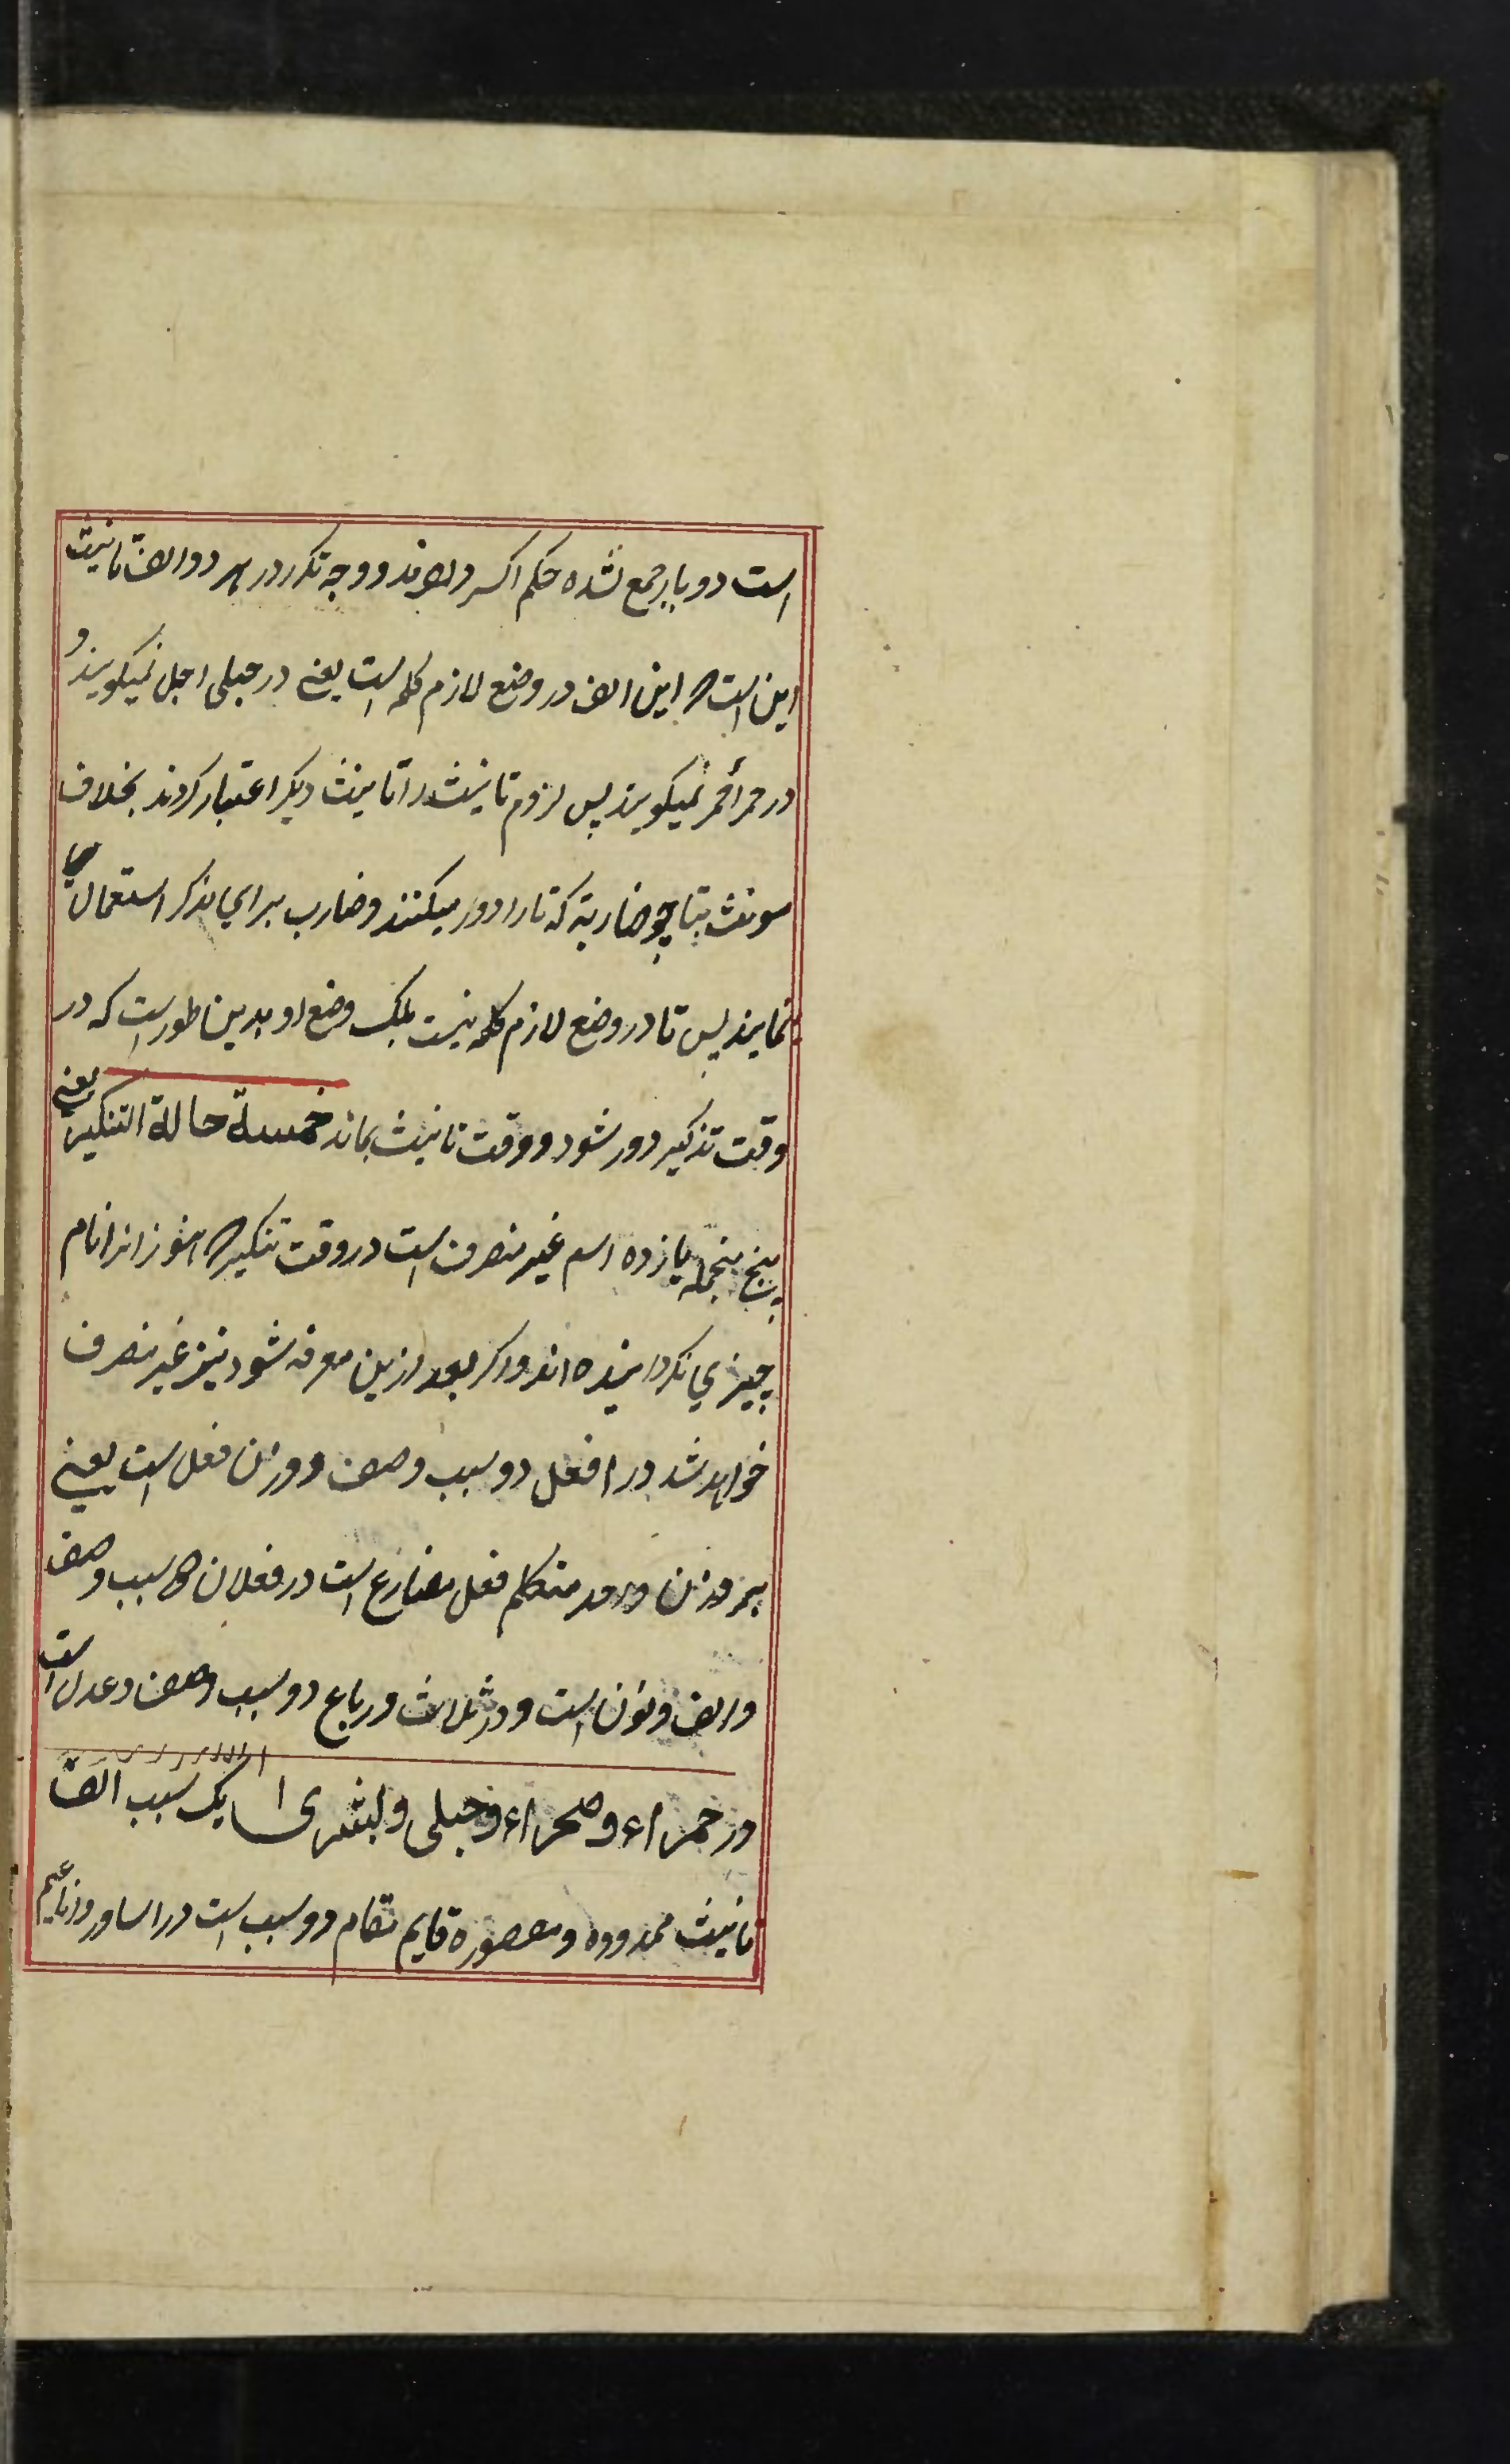 است دو بار جمع نشده حکم اکسر دارند و وجه تکرر در هر دو الف تانیث
این است که این الف در وضع لازم کلمه است یعنی در حبلی احبل نمیکویند و
در حمرا أحمر نمیکویند پس لزوم تانیث را تانیث دیکر اعتبار کردند بخلاف
مونث بتا چو ضاربة که تا را دور میکنند و ضارب برای مذکر استعمال می
نمایند پس تا در وضع لازم کلمه نیست بلکه وضع او بدین طور است که در
وقت تذکیر دور شود و وقت تانیث بماند خمسة حالة التنکیر یعنی
پنج منجمله یازده اسم غیر منصرف است در وقت تنکیر که هنوز انرا نام
چیزی نکردانیده اند و اکر بعد ازین معرفه شود نیز غیر منصرف
خواهد شد در افعل دو سبب وصف و وزن فعل است یعنی
بر وزن واحد متکلم فعل مضارع است در فعلان دو سبب وصف
و الف و نون است و در ثلاث و رباع دو سبب وصف و عدل است
در حمراء و صحراء و حبلی و بشری یک سبب الف
تانیث ممدوده و مقصوره قایم مقام دو سبب است در اساور و اناعیم